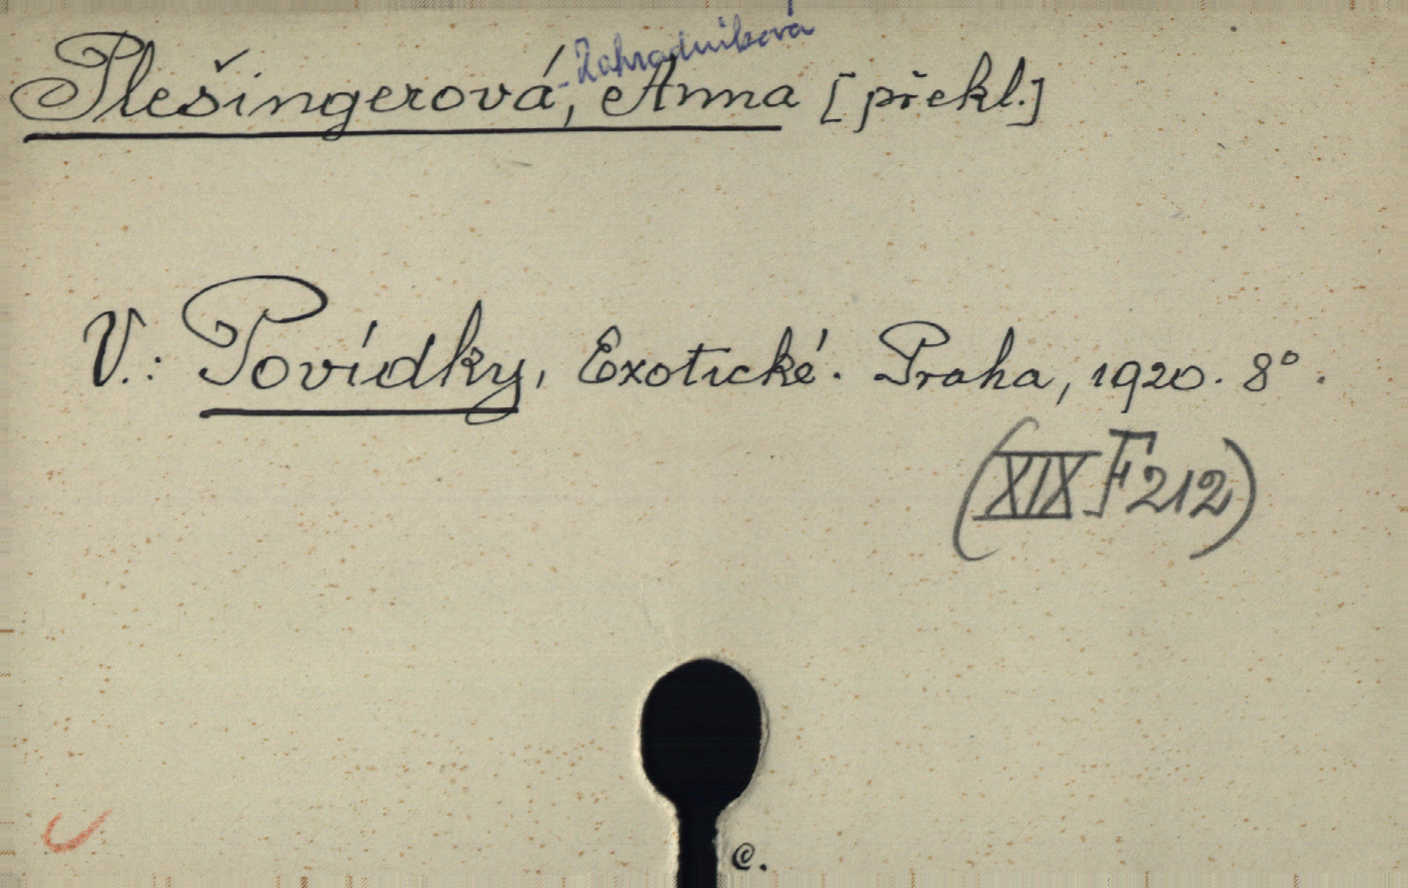 -Zahradníková
Plešingerová, Anna [překl.]
V.: Povídky, Exotické. Praha, 1920. 8°.
(XIX F 212)
C.